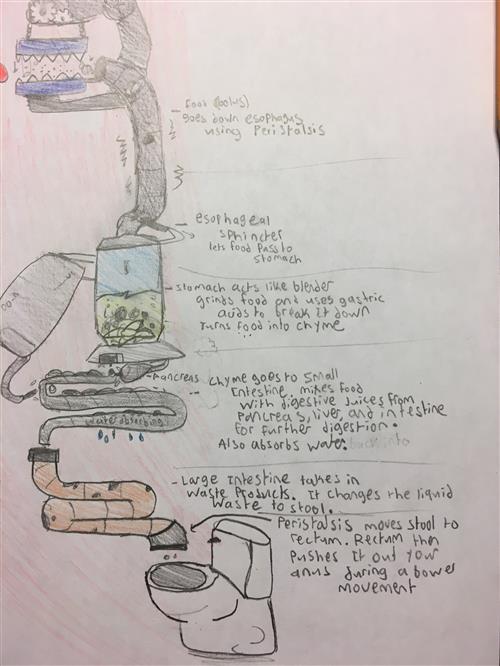 Food (bolus)
goes down esophagus
using Peristalsis
esophageal
sphincter
lets food pass to
stomach
stomach acts like blender
grinds food and uses gastric
acids to break it down
Turns food into chyme
Pancreas
chyme goes to small
Intestine mixes food
with digestive juices from
Pancreas, liver, and intestine
for further digestion.
Also absorbs water back into
water absorbing
Large Intestine takes in
waste products. It changes the liquid
waste to stool.
Peristalsis moves stool to
rectum. Rectum then
Pushes it out your
anus during a bowel
movement